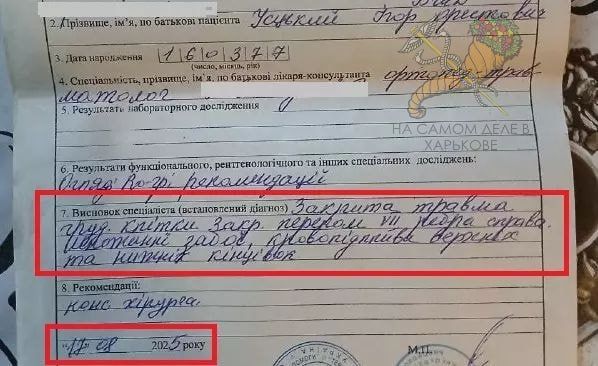 2. Прізвище, ім'я, по батькові пацієнта Усцький Ігор Орестович
3. Дата народження 160377
(число, місяць, рік)
4. Спеціальність, прізвище, ім'я, по батькові лікаря-консультанта ортопед-трав
матолог
5. Результати лабораторного дослідження
НА САМОМ ДЕЛЕ В
ХАРЬКОВЕ
6. Результати функціонального, рентгенологічного та інших спеціальних досліджень:
Огляд Ro-грі рекомендацій
7. Висновок спеціаліста (встановлений діагноз) Закрита травма
груд. клітки Закр. перелом VII ребра справа.
забої, кровопідпливи верхніх
та нижніх кінцівок
8. Рекомендації:
конс хірурга.
"17" 08 2025 року
М.П.